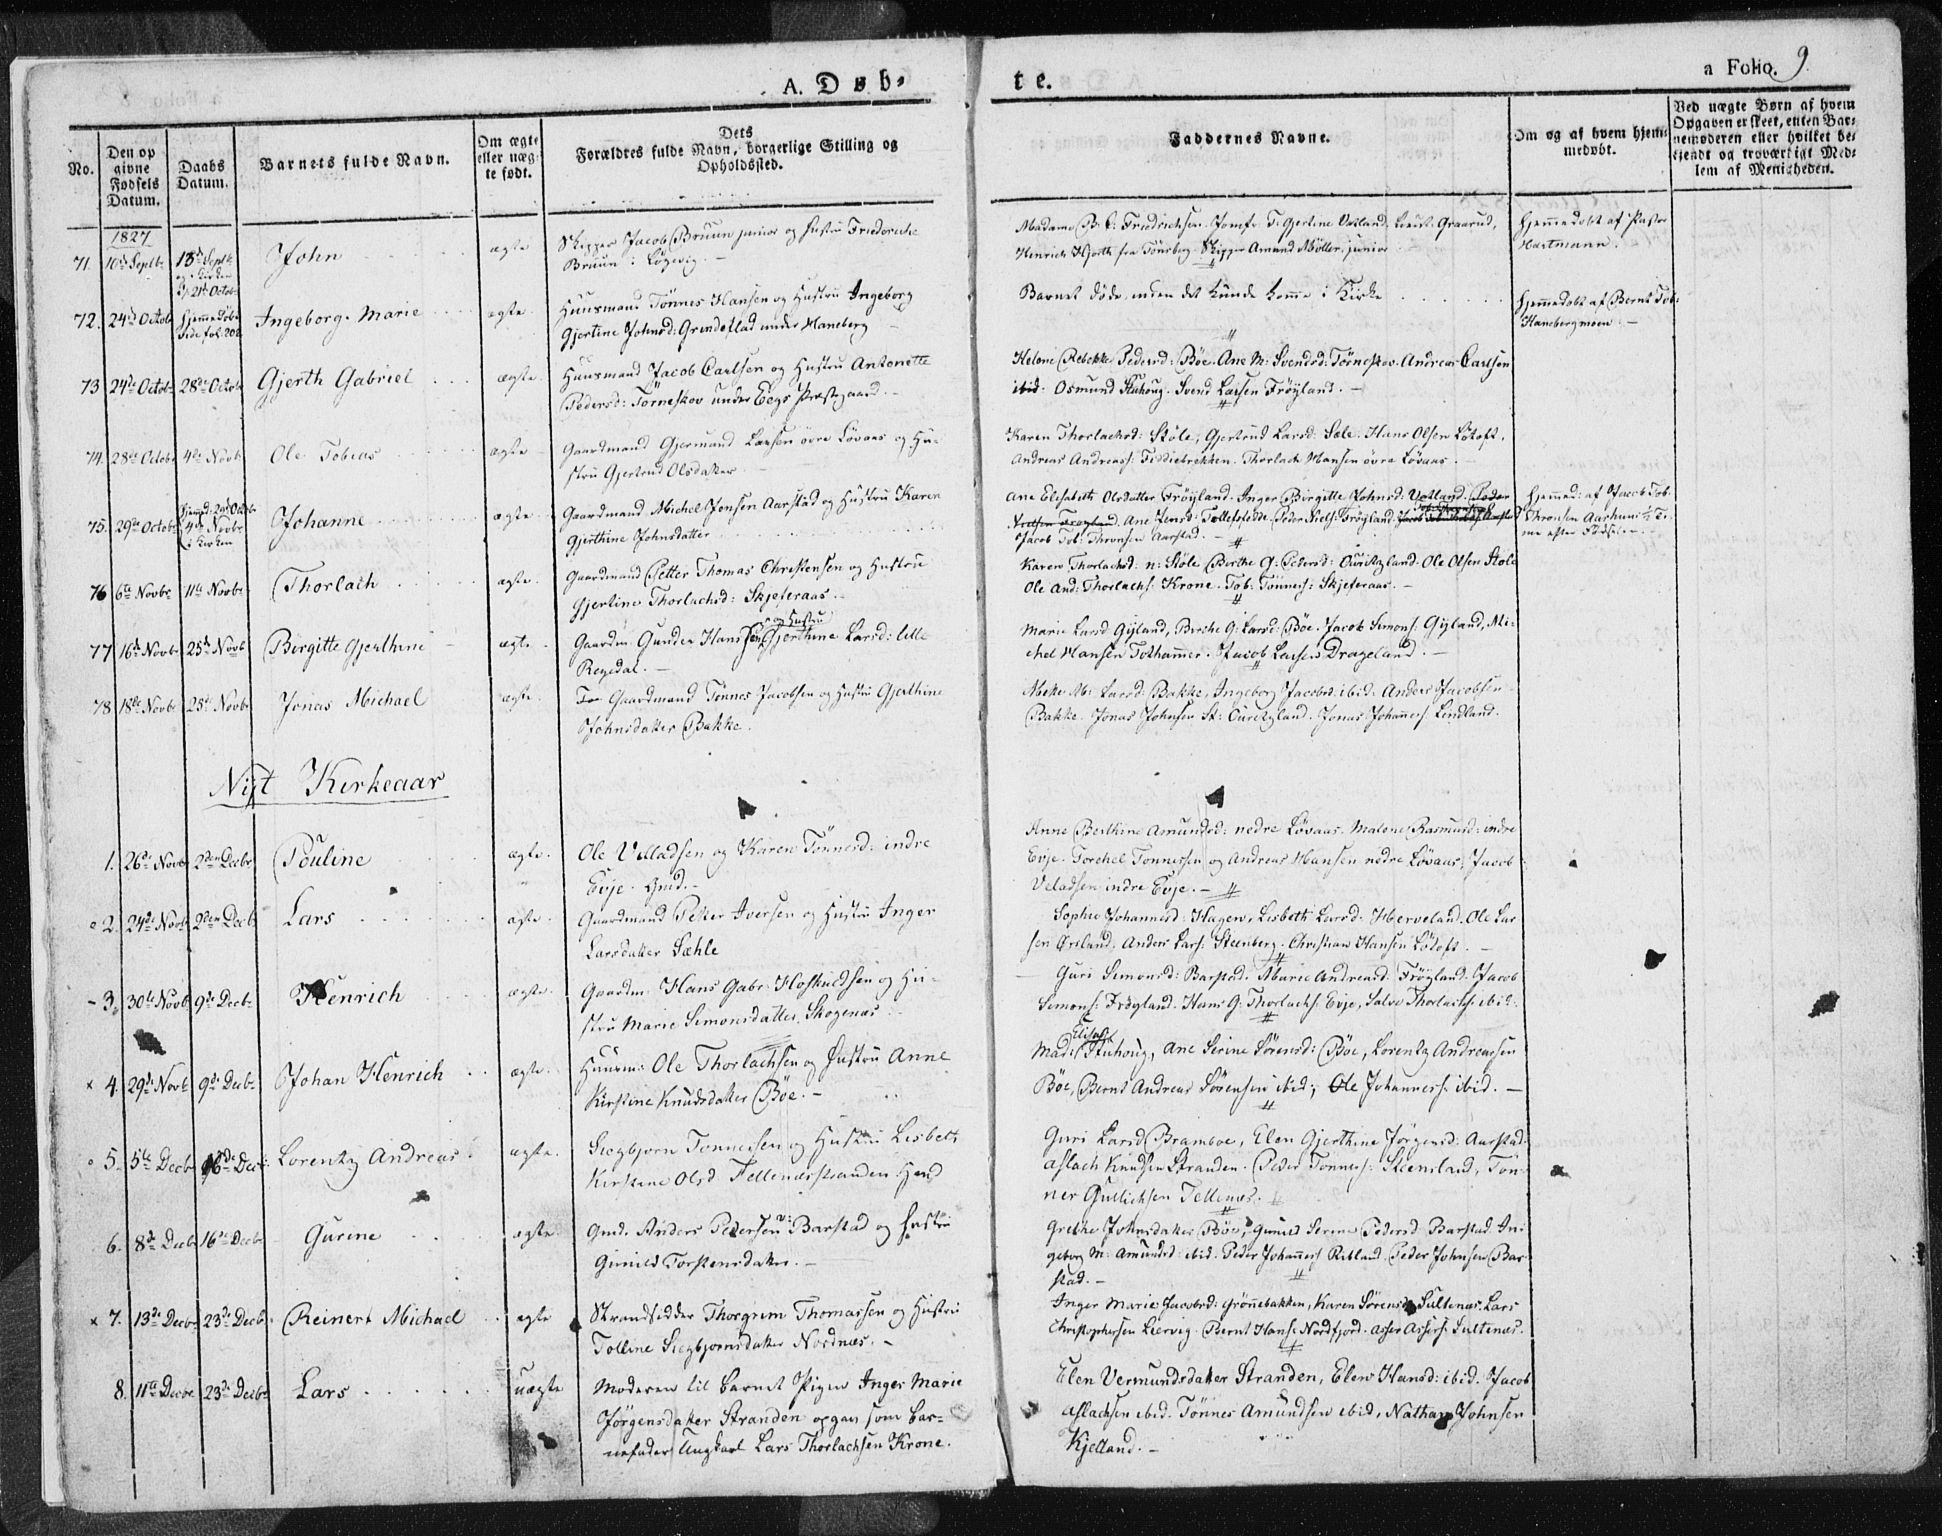 A. Døb-
te.
a Folio. 9
No.
Den op givne Fødsels Datum.
Daabs Datum.
Barnets fulde Navn.
Om ægte eller uægte født.
Dets Forældres fulde Navn, borgerlige Stilling og Opholdssted.
Faddernes Navne.
Om og af hvem hjemmedøbt.
Ved uægte Børn af hvem Opgaven er skeet, enten Barnemoderen eller hvilket bekjendt og troværdigt Medlem af Menigheden.
1827
71. 10de Septbr 13de Septbr og i Kirken 21de Octobr John ægte Skipper Jacob Bruun junior og Hustru Friederiche
Bruun i Løgevig. -
Madame B. C. Friedrichsen. Jomfr. T. Gjertine Vatland. Lieut. Graarud,
Henrich Hjorth fra Tönsberg. Skipper Amund Möller junior
Hjemmedöbt af Pastor
Hartmann.
72. 24de Octobr Hjemmedöbt Side fol. 202 Ingeborg Marie ægte. Huusmand Tönnes Hansen og Hustru Ingeborg
Gjertine Johnsd: Grundeslad under Haneberg
Barnet döde inden det kunde komme i Kirke
Hjemmedöbt af Bernt Tob:
Hanebergmoen. -
73 24de Octobr 28de Octobr Gjerth Gabriel ægte. Huusmand Jacob Carlsen og Hustru Antonette
Pedersd: Törneskov under Eegs Præstegaard.
Helene Rebekke Pedersd: Böe. Ane M: Svendsd: Törneskov. Andreas Carlsen
ibid. Osmund Stuhoug. Svend Larsen Fröyland. -
74. 28de Octobr 4de Novbr Ole Tobias ægte Gaardmand Gjermund Larsen övre Lövaas og Hu-
stru Gjertrud Olsdatter
Karen Thorlachsd: Stöle, Gjertrud Larsd: Sæle. Hans Olsen Lötoft.
Andreas Andreass: Fiddiebrekken. Thorlach Hansen övre Lövaas. -
75. 29de Octobr Hjemmed: 29de Octobr 4de Novbr i Kirken Johanne ægte Gaardmand Michel Jensen Aarstad og Hustru Karen
Gjerthine Johnsdatter
Ane Elisabeth Olsdatter Fröyland. Inger Birgitte Johnsd: Vatland. Peder
Nielsen Frøyland Ane Jensd: Tollefsfeldte. Peder Niels: Frögland
Jacob Tob: Thronsen Aarstad. -
Hjemmed: af Jacob Tob:
Thronsen Aarhuus ½ Ti-
me efter Födselen.
76 6te Novbr 11te Novbr Thorlach ægte. Gaardmand Petter Thomas Christensen og Hustru
Gjertine Thorlachsd: Skjeferaas. -
Karen Thorlachsd: n: Stöle Berthe G: Pedersd: Ouritzland. Ole Olsen Stöle
Ole And: Thorlachs: Krone. Tob: Tönness: Skjeferaas. -
77 16de Novbr 25de Novbr Birgitte Gjerthine ægte Gaardm: Gunder Hanssen og Hustru Gjerthine Larsd: lille
Regedal. -
Marie Larsd Gyland, Berthe G: Larsd: Böe. Jacob Simons: Gyland, Mi-
chel Hansen Tothammer. Jacob Larsen Drageland. -
78 18de Novbr 25de Novbr Jonas Michael ægte. Gaardmand Tönnes Jacobsen og Hustru Gjerthine
Johnsdatter Bakke.
Meke M: Larsd: Bakke, Ingeborg Jacobsd: ibid. Anders Jacobsen
Bakke. Jonas Johnsen St: Ouritzland. Jonas Johannes: Lindland.
Nyt Kirkeaar
1. 26de Novbr 2den Decbr Pouline ægte. Ole Velladsen og Karen Tönnesd: indre
Evje. Gmd. -
Anne Berthine Amundsd: nedre Lövaas. Malene Rasmusd: indre
Evje. Torchel Tonnessen og Andreas Hansen nedre Lövaas, Jacob
Veladsen indre Evje. -
2. 24de Novbr 2den Decbr Lars ægte. Gaardmand Peter Iversen og Hustru Inger
Larsdatter Sæhle
Sophie Johannesd: Hagen, Lisbeth Larsd. Herveland. Ole Lar
sen Orsland. Anders Lars: Steenberg. Christian Hansen Lötoft. -
- 3. 30te Novbr 9de Decbr Henrich ægte. Gaardm: Hans Gabr: Hoskuldsen og Hu-
stru Marie Simonsdatter Skogenas
Guri Simonsd: Barstad. Marie Andreasd: Frögland. Jacob
Simons: Frögland. Hans G: Thorlachs: Evje, Salve Thorlachs: ibid.
× 4. 29de Novbr 9de Decbr Johan Henrich ægte. Huusm: Ole Thorlachsen og Hustru Anne
Kirstine Knudsdatter Böe. -
Mad: Elisab: Stuhoug, Ane Serine Sörensd: Böe, Lorentz Andreassen
Böe, Bernt Andreas Sörensen ibid, Ole Johanness: ibid. -
5. 5te Decbr 16de Decbr: Lorentz Andreas ægte. Siegbjorn Tonnessen og Hustru Lisbeth
Kirstine Olsd Tellenæsstranden Hmd
Guri Larsd Bramboe, Elen Gjerthine Jörgensd: Aarstad
Aslach Knudsen Stranden. Peder Tonness: Steensland, Ton-
nes Gullichsen Tellenæs.
6. 8de Decbr 16de Decbr Gurine ægte Gmd. Anders Pedersen Barstad og Hustru
Gunild Torstensdatter. -
Grethe Johnsdatter Böe, Gunild Serine Pedersd Barstad. In-
geborg M: Amundsd: ibid. Peder Johannes: Rebland Peder Johnsen Bar-
stad. -
× 7. 13de Decbr 23de Decbr Reinert Michael ægte Strandsidder Thorgrim Thomassen og Hustru
Tolline Siegbjornsdatter Nordnæs. -
Inger Marie Jacobsd: Grönnebakken, Karen Sörensd Sultenæs. Lars
Christophersen Liervig. Bernt Hans: Nordfjord. Asser Assers: Sultenæs.
8. 11te Decbr 23de Decbr Lars uægte Moderen til Barnet Pigen Inger Marie
Jörgensdatter Stranden opgav som Bar-
nefader Ungkarl Lars Thorlachsen Krone.
Elen Vermundsdatter Stranden, Elen Hansd: ibid. Jacob
Aslachsen ibid. Tönnes Amundsen ibid, Nathan Johnsen
Kjelland. -